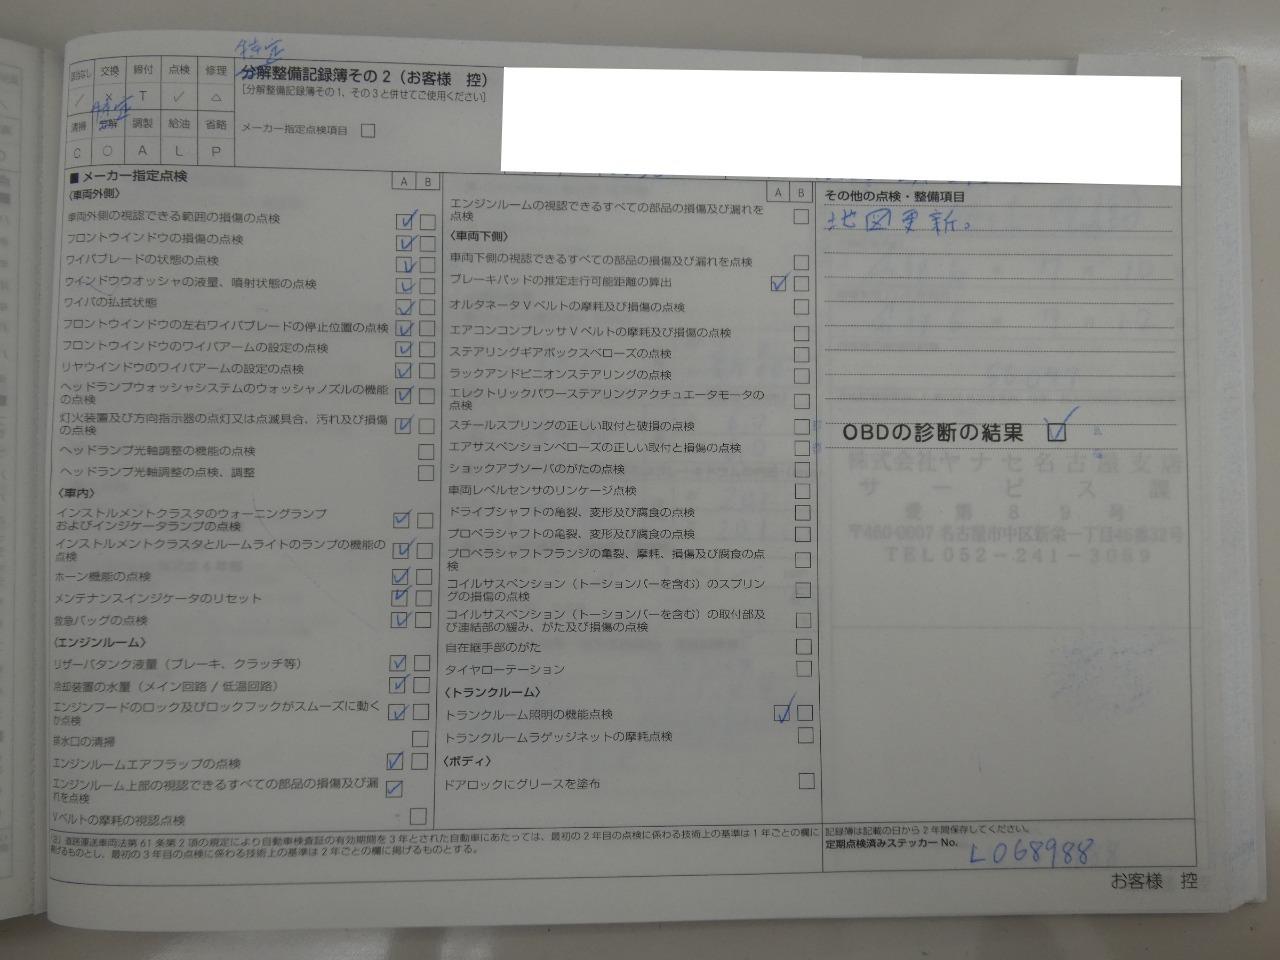 特定
該当なし 交換 締付 点検 修理
／ × T ✓ △
特定
清掃 分解 調整 給油 省略
C ○ A L P
分解整備記録簿その2（お客様 控）
［分解整備記録簿その1、その3と併せてご使用ください］
メーカー指定点検項目 □
■メーカー指定点検
A B
〈車両外側〉
車両外側の視認できる範囲の損傷の点検
フロントウインドウの損傷の点検
ワイパブレードの状態の点検
ウインドウウオッシャの液量、噴射状態の点検
ワイパの払拭状態
フロントウインドウの左右ワイパブレードの停止位置の点検
フロントウインドウのワイパアームの設定の点検
リヤウインドウのワイパアームの設定の点検
ヘッドランプウォッシャシステムのウォッシャノズルの機能
の点検
灯火装置及び方向指示器の点灯又は点滅具合、汚れ及び損傷
の点検
ヘッドランプ光軸調整の機能の点検
ヘッドランプ光軸調整の点検、調整
〈車内〉
インストルメントクラスタのウォーニングランプ
およびインジケータランプの点検
インストルメントクラスタとルームライトのランプの機能の
点検
ホーン機能の点検
メンテナンスインジケータのリセット
救急バッグの点検
〈エンジンルーム〉
リザーバタンク液量（ブレーキ、クラッチ等）
冷却装置の水量（メイン回路 / 低温回路）
エンジンフードのロック及びロックフックがスムーズに動く
か点検
排水口の清掃
エンジンルームエアフラップの点検
エンジンルーム上部の視認できるすべての部品の損傷及び漏
れを点検
Vベルトの摩耗の視認点検
A B
エンジンルームの視認できるすべての部品の損傷及び漏れを
点検
〈車両下側〉
車両下側の視認できるすべての部品の損傷及び漏れを点検
ブレーキパッドの推定走行可能距離の算出
オルタネータVベルトの摩耗及び損傷の点検
エアコンコンプレッサVベルトの摩耗及び損傷の点検
ステアリングギアボックスベローズの点検
ラックアンドピニオンステアリングの点検
エレクトリックパワーステアリングアクチュエータモータの
点検
スチールスプリングの正しい取付と破損の点検
エアサスペンションベローズの正しい取付と損傷の点検
ショックアブソーバのがたの点検
車両レベルセンサのリンケージ点検
ドライブシャフトの亀裂、変形及び腐食の点検
プロペラシャフトの亀裂、変形及び腐食の点検
プロペラシャフトフランジの亀裂、摩耗、損傷及び腐食の点
検
コイルサスペンション（トーションバーを含む）のスプリン
グの損傷の点検
コイルサスペンション（トーションバーを含む）の取付部及
び連結部の緩み、がた及び損傷の点検
自在継手部のがた
タイヤローテーション
〈トランクルーム〉
トランクルーム照明の機能点検
トランクルームラゲッジネットの摩耗点検
〈ボディ〉
ドアロックにグリースを塗布
その他の点検・整備項目
地図更新。
OBDの診断の結果 ✓
株式会社ヤナセ名古屋支店
サービス課
愛第89号
〒460-0007 名古屋市中区新栄一丁目45番32号
TEL052-241-3089
(注) 道路運送車両法第61条第2項の規定により自動車検査証の有効期間を3年とされた自動車にあたっては、最初の2年目の点検に係わる技術上の基準は1年ごとの欄に
掲げるものとし、最初の3年目の点検に係わる技術上の基準は2年ごとの欄に掲げるものとする。
記録簿は記載の日から2年間保存してください。
定期点検済みステッカー No. L068988
お客様 控